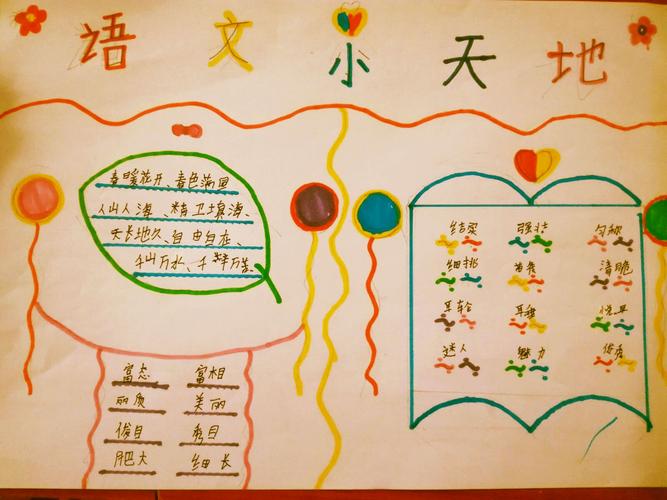 语文小天地
春暖花开、春色满园
人山人海、精卫填海、
天长地久、自由自在、
千山万水、千辛万苦、
富态 富相
丽质 美丽
俊目 秀目
肥大 细长
结实 强壮 匀称
细挑 清脆
耳轮 耳 悦耳
迷人 魅力 优秀